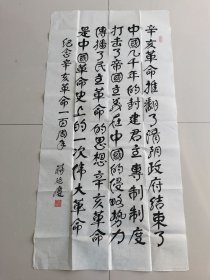 辛亥革命推翻了清朝政府结束了
中國几千年的封建君主专制制度
打击了帝國主义在中國的侵略势力
传播了民主革命的思想辛亥革命
是中國革命史上的一次伟大革命
纪念辛亥革命一百周年